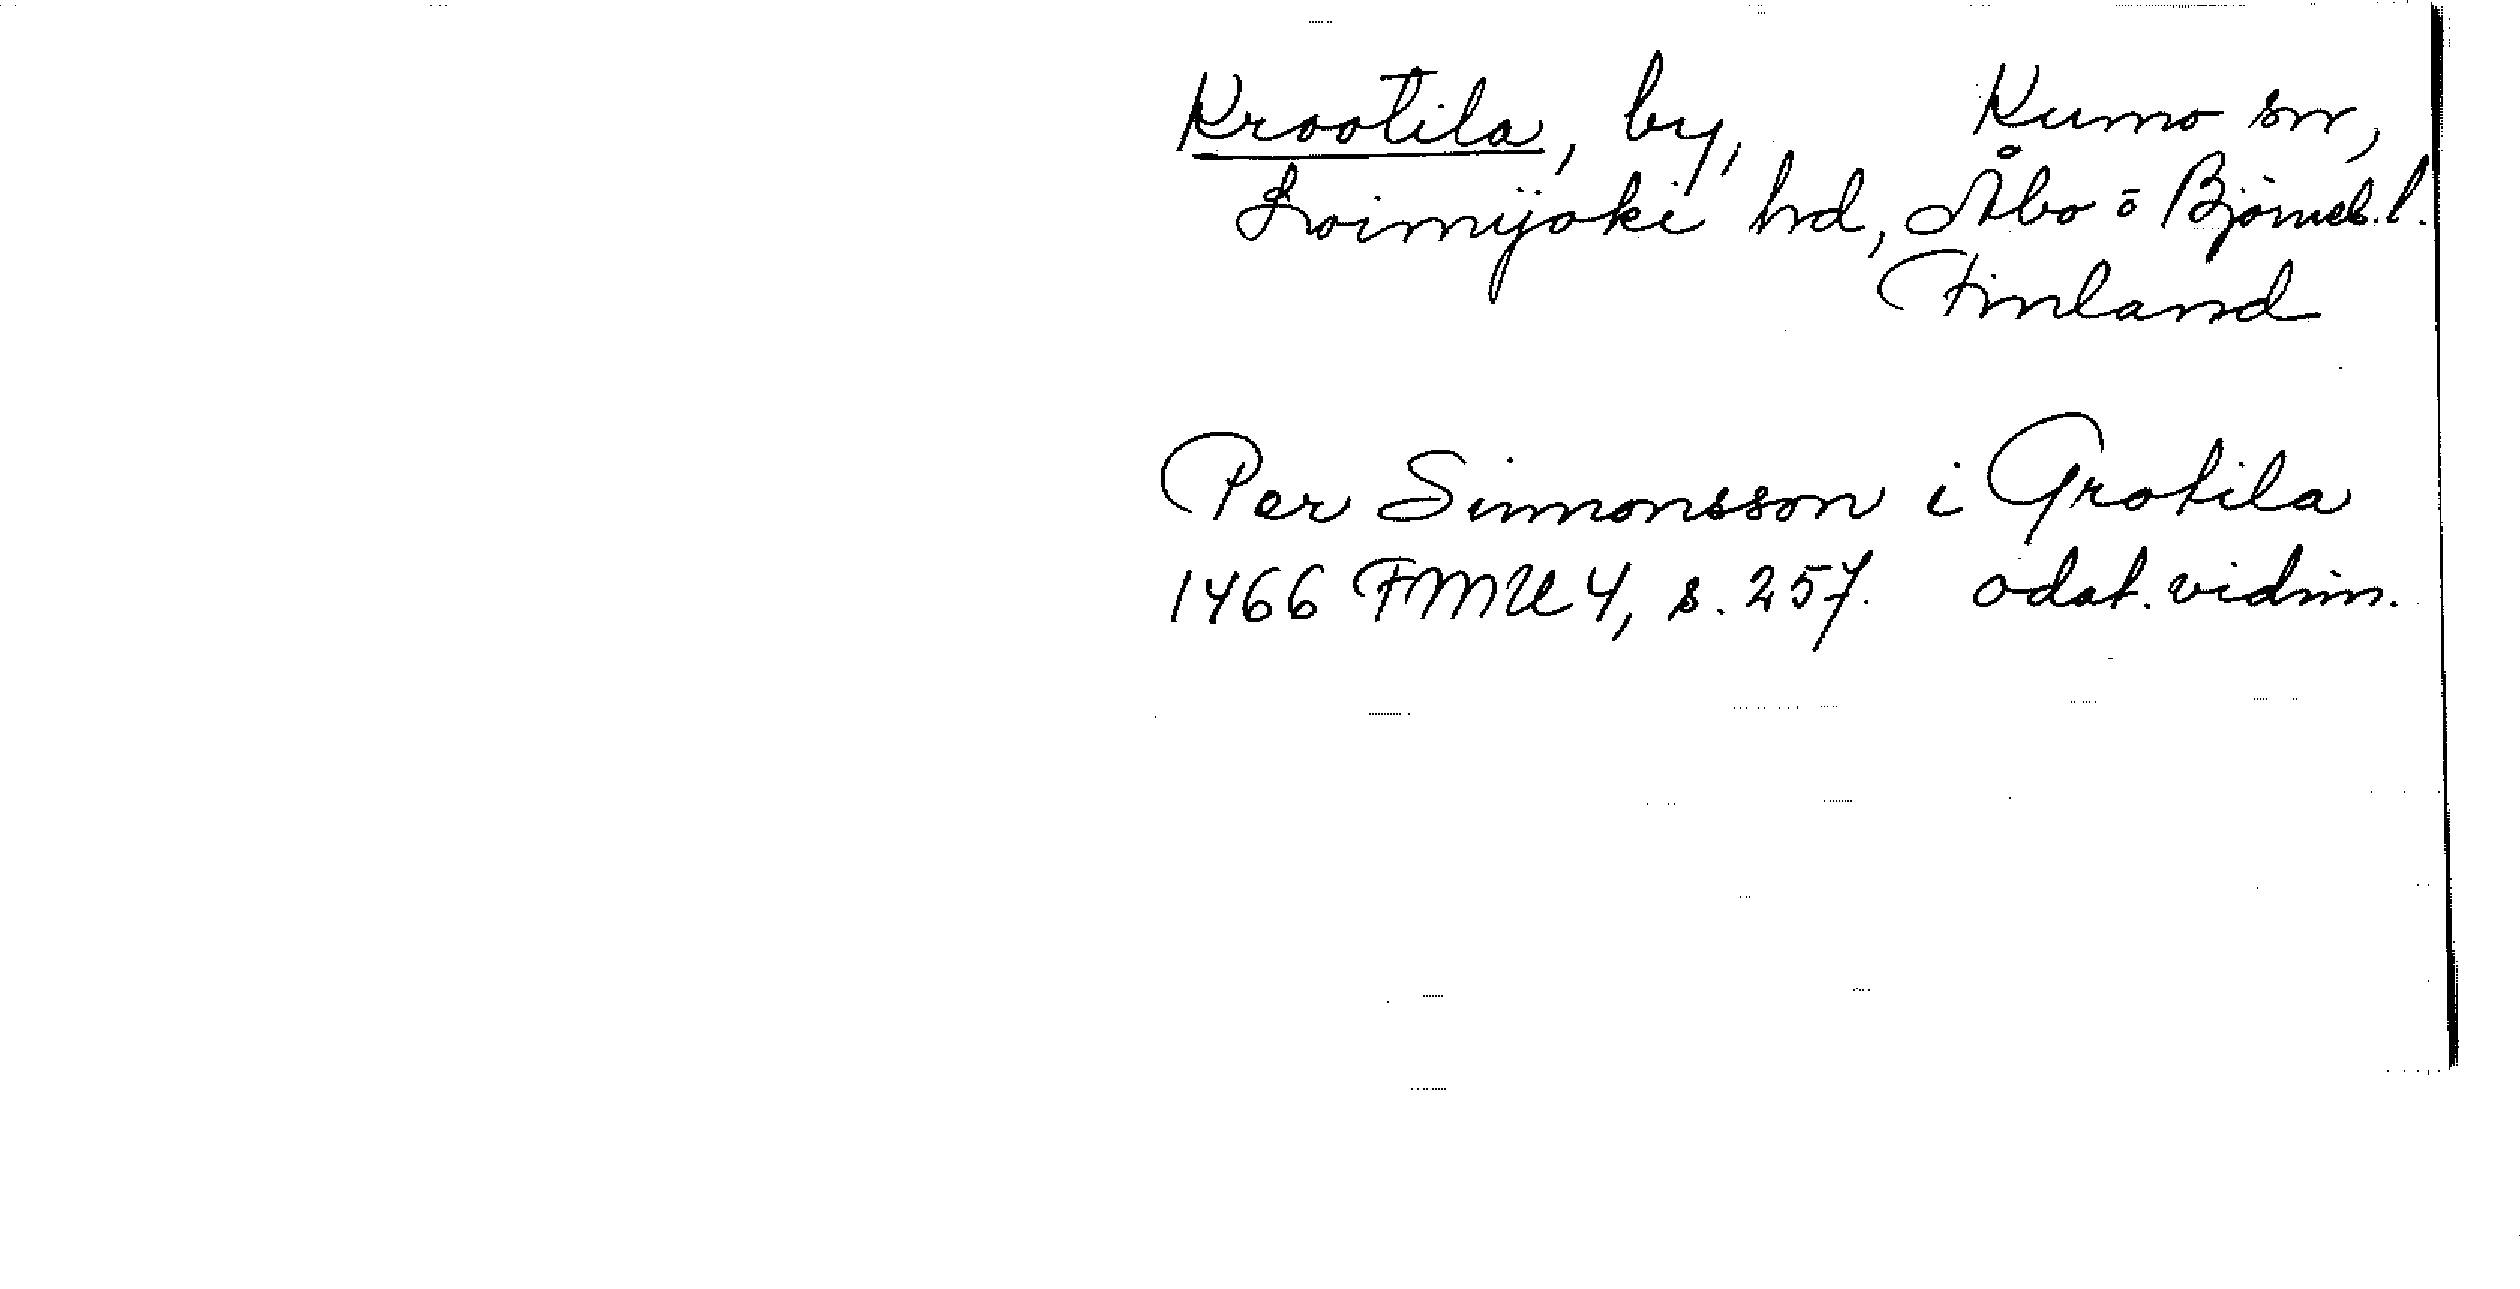 Krootila, by, Kumo sn,
Loimijoki hd, Åbo o Björneb. l.
Finland
Per Simonsson i Grotila
1466 FMU 4, s. 257. odat. vidim.